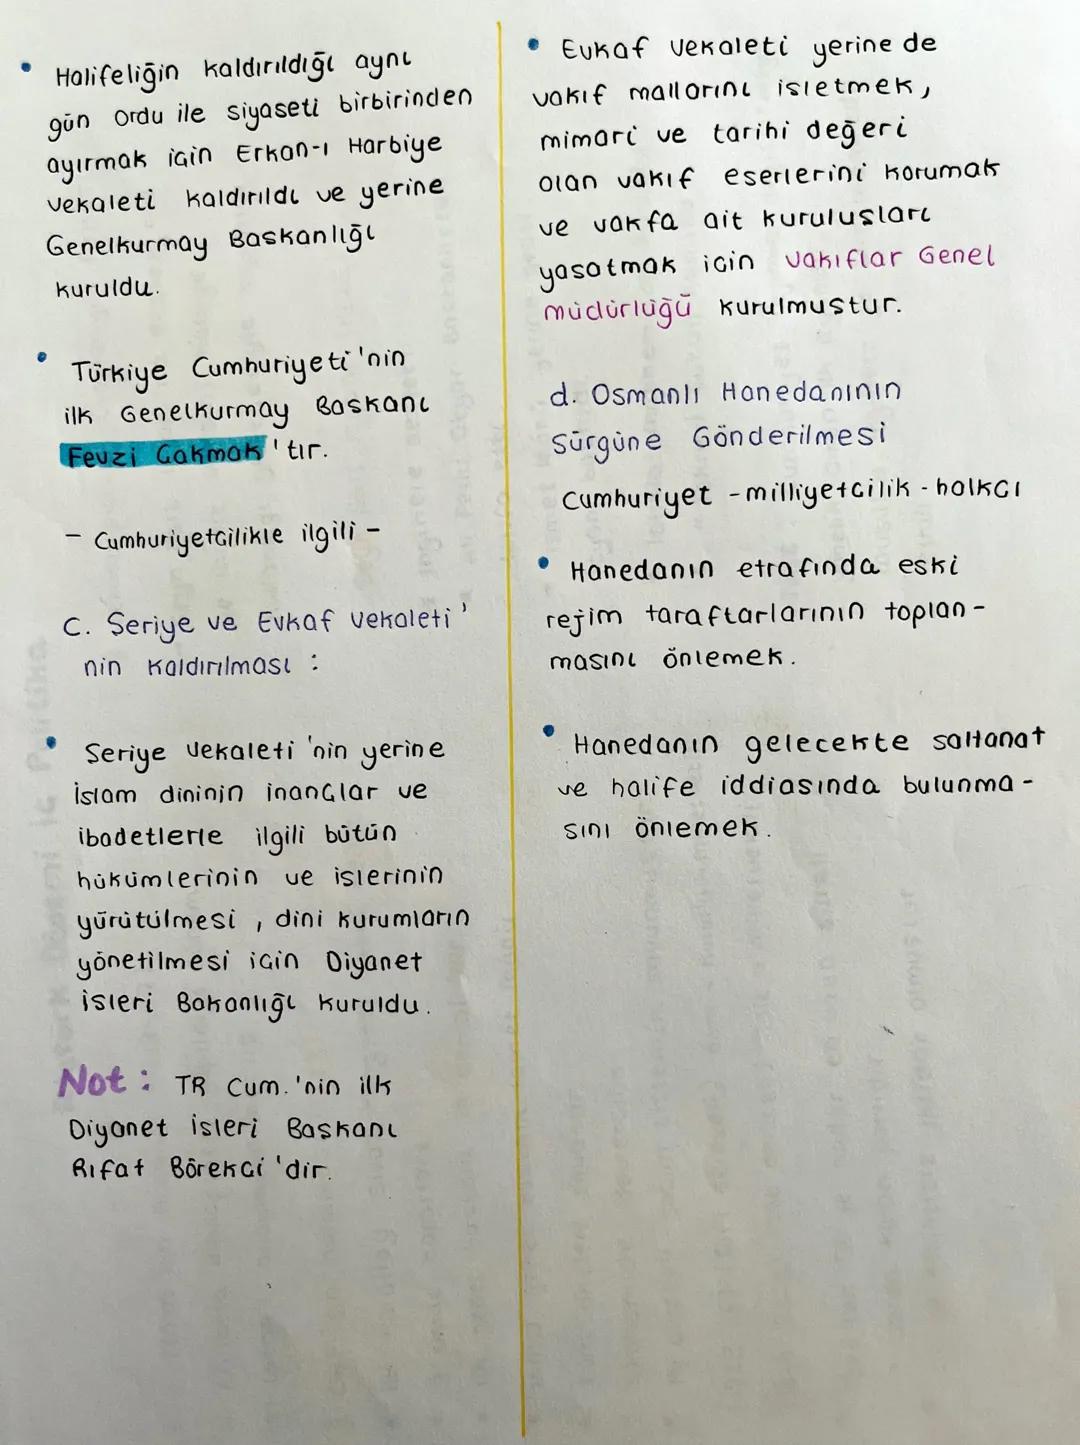 • Halifeliğin kaldırıldığı aynı
gün ordu ile siyaseti birbirinden
ayırmak için Erkan-ı Harbiye
vekaleti kaldırıldı ve yerine
Genelkurmay Başkanlığı
kuruldu.
• Türkiye Cumhuriyeti'nin
ilk Genelkurmay Başkanı
Fevzi Çakmak'tır.
- Cumhuriyetçilikle ilgili -
c. Şeriye ve Evkaf vekaleti'
nin kaldırılması :
• Şeriye vekaleti'nin yerine
İslam dininin inançlar ve
ibadetlerle ilgili bütün
hükümlerinin ve işlerinin
yürütülmesi, dini kurumların
yönetilmesi için Diyanet
işleri Bakanlığı kuruldu.
Not : TR Cum.'nin ilk
Diyanet işleri Başkanı
Rıfat Börekçi'dir.
• Evkaf vekaleti yerine de
vakıf mallarını işletmek,
mimari ve tarihi değeri
olan vakıf eserlerini korumak
ve vakfa ait kuruluşları
yaşatmak için Vakıflar Genel
müdürlüğü kurulmuştur.
d. Osmanlı Hanedanının
Sürgüne Gönderilmesi
Cumhuriyet - milliyetçilik - halkçı
• Hanedanın etrafında eski
rejim taraftarlarının toplan-
masını önlemek.
• Hanedanın gelecekte saltanat
ve halife iddiasında bulunma-
sını önlemek.